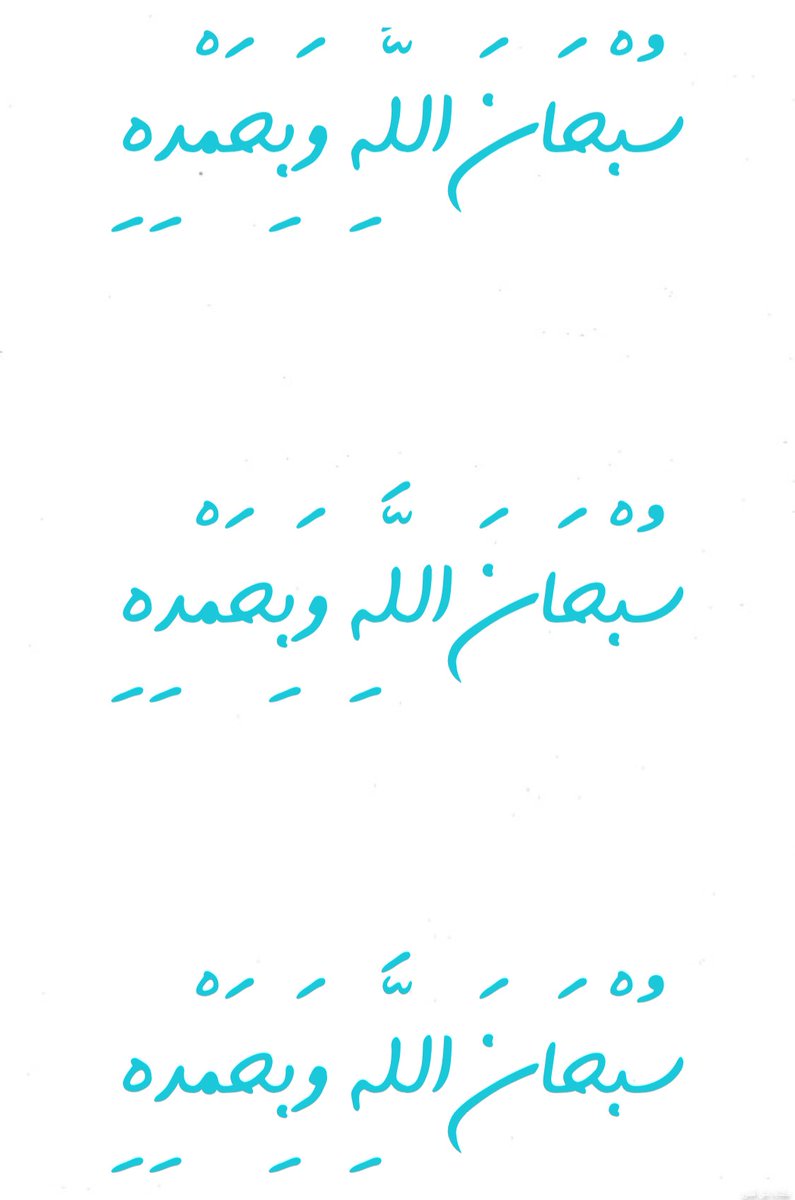 سُبْحَانَ اللَّهِ وَبِحَمْدِهِ
سُبْحَانَ اللَّهِ وَبِحَمْدِهِ
سُبْحَانَ اللَّهِ وَبِحَمْدِهِ